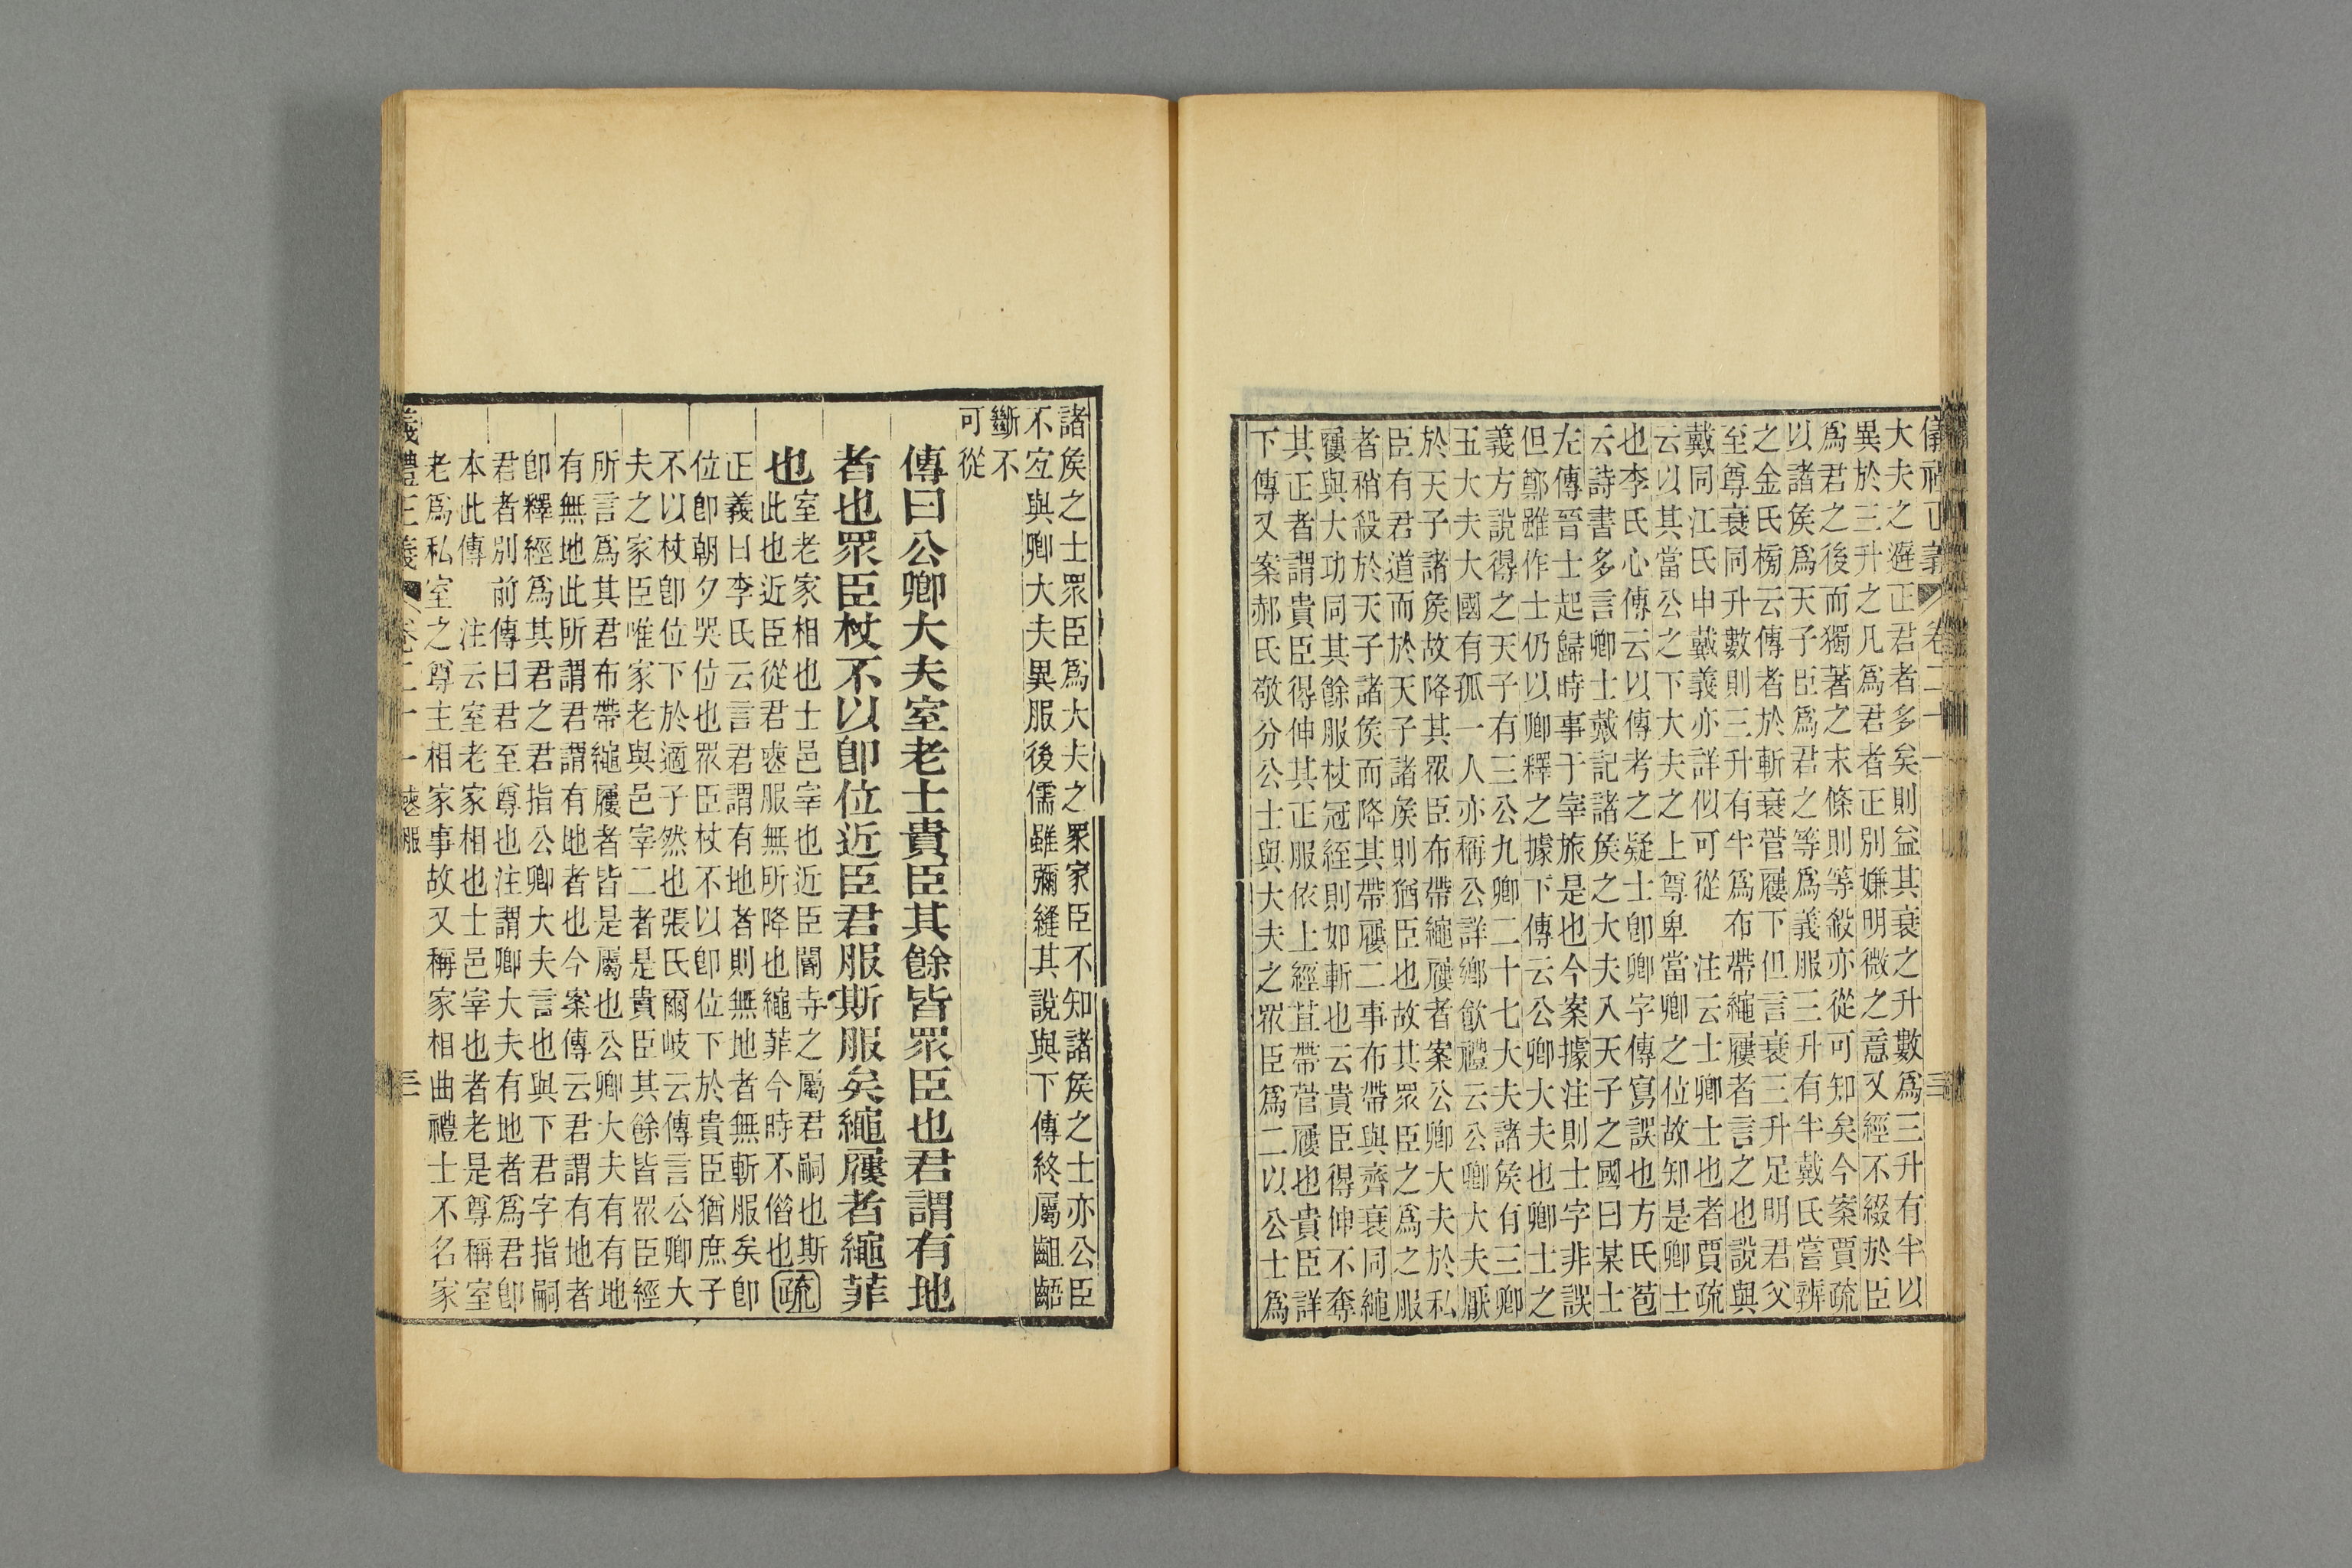 儀禮正義 卷二十一 三
大夫之避正君者多矣則益其衰之升數爲三升有半以
異於三升之凡爲君者正別嫌明微之意又經不綴於臣
爲君之後而獨著之末條則等殺亦從可知矣今案賈疏
以諸矦爲天子臣爲君之等爲義服三升有半戴氏嘗辨
之金氏榜云傳者於斬衰菅屨下但言衰三升足明君父
至尊衰同升數則三升有半爲布帶繩屨者言之也說與
戴同江氏申戴義亦詳似可從 注云士卿士也者賈疏
云以其當公之下大夫之上尊卑當卿之位故知是卿士
也李氏心傳云以傳考之疑士卽卿字傳寫誤也方氏苞
云詩書多言卿士戴記諸矦之大夫入天子之國曰某士
左傳晉士起歸時事于宰旅是也今案據注則士字非誤
但鄭雖作士仍以卿釋之據下傳云公卿大夫也卿士之
義方說得之天子有三公九卿二十七大夫諸矦有三卿
五大夫大國有孤一人亦稱公詳鄉飮禮云公卿大夫厭
於天子諸矦故降其眾臣布帶繩屨者案公卿大夫於私
臣有君道而於天子諸矦則猶臣也故其眾臣之爲之服
者稍殺於天子諸矦而降其帶屨二事布帶與齊衰同繩
屨與大功同其餘服杖冠絰則如斬也云貴臣得伸不奪
其正者謂貴臣得伸其正服依上經苴帶菅屨也貴臣詳
下傳又案郝氏敬分公士與大夫之眾臣爲二以公士爲
諸矦之士眾臣爲大夫之眾家臣不知諸矦之士亦公臣
不宐與卿大夫異服後儒雖彌縫其說與下傳終屬齟齬
斷不
可從
傳曰公卿大夫室老士貴臣其餘皆眾臣也君謂有地
者也眾臣杖不以卽位近臣君服斯服矣繩屨者繩菲
也
室老家相也士邑宰也近臣閽寺之屬君嗣也斯
此也近臣從君喪服無所降也繩菲今時不借也疏
正義曰李氏云言君謂有地者則無地者無斬服矣卽
位卽朝夕哭位也眾臣杖不以卽位下於貴臣猶庶子
不以杖卽位下於適子然也張氏爾岐云傳言公卿大
夫之家臣唯家老與邑宰二者是貴臣其餘皆眾臣經
所言爲其君布帶繩屨者皆是屬也公卿大夫有有地
有無地此所謂君謂有地者也今案傳云君謂有地者
卽釋經爲其君之君指公卿大夫言也與下君字指嗣
君者別前傳曰君至尊也注謂卿大夫有地者爲君卽
本此傳 注云室老家相也士邑宰也者老是尊稱室
老爲私室之尊主相家事故又稱家相曲禮士不名家
義禮正義 卷二十一 喪服 三